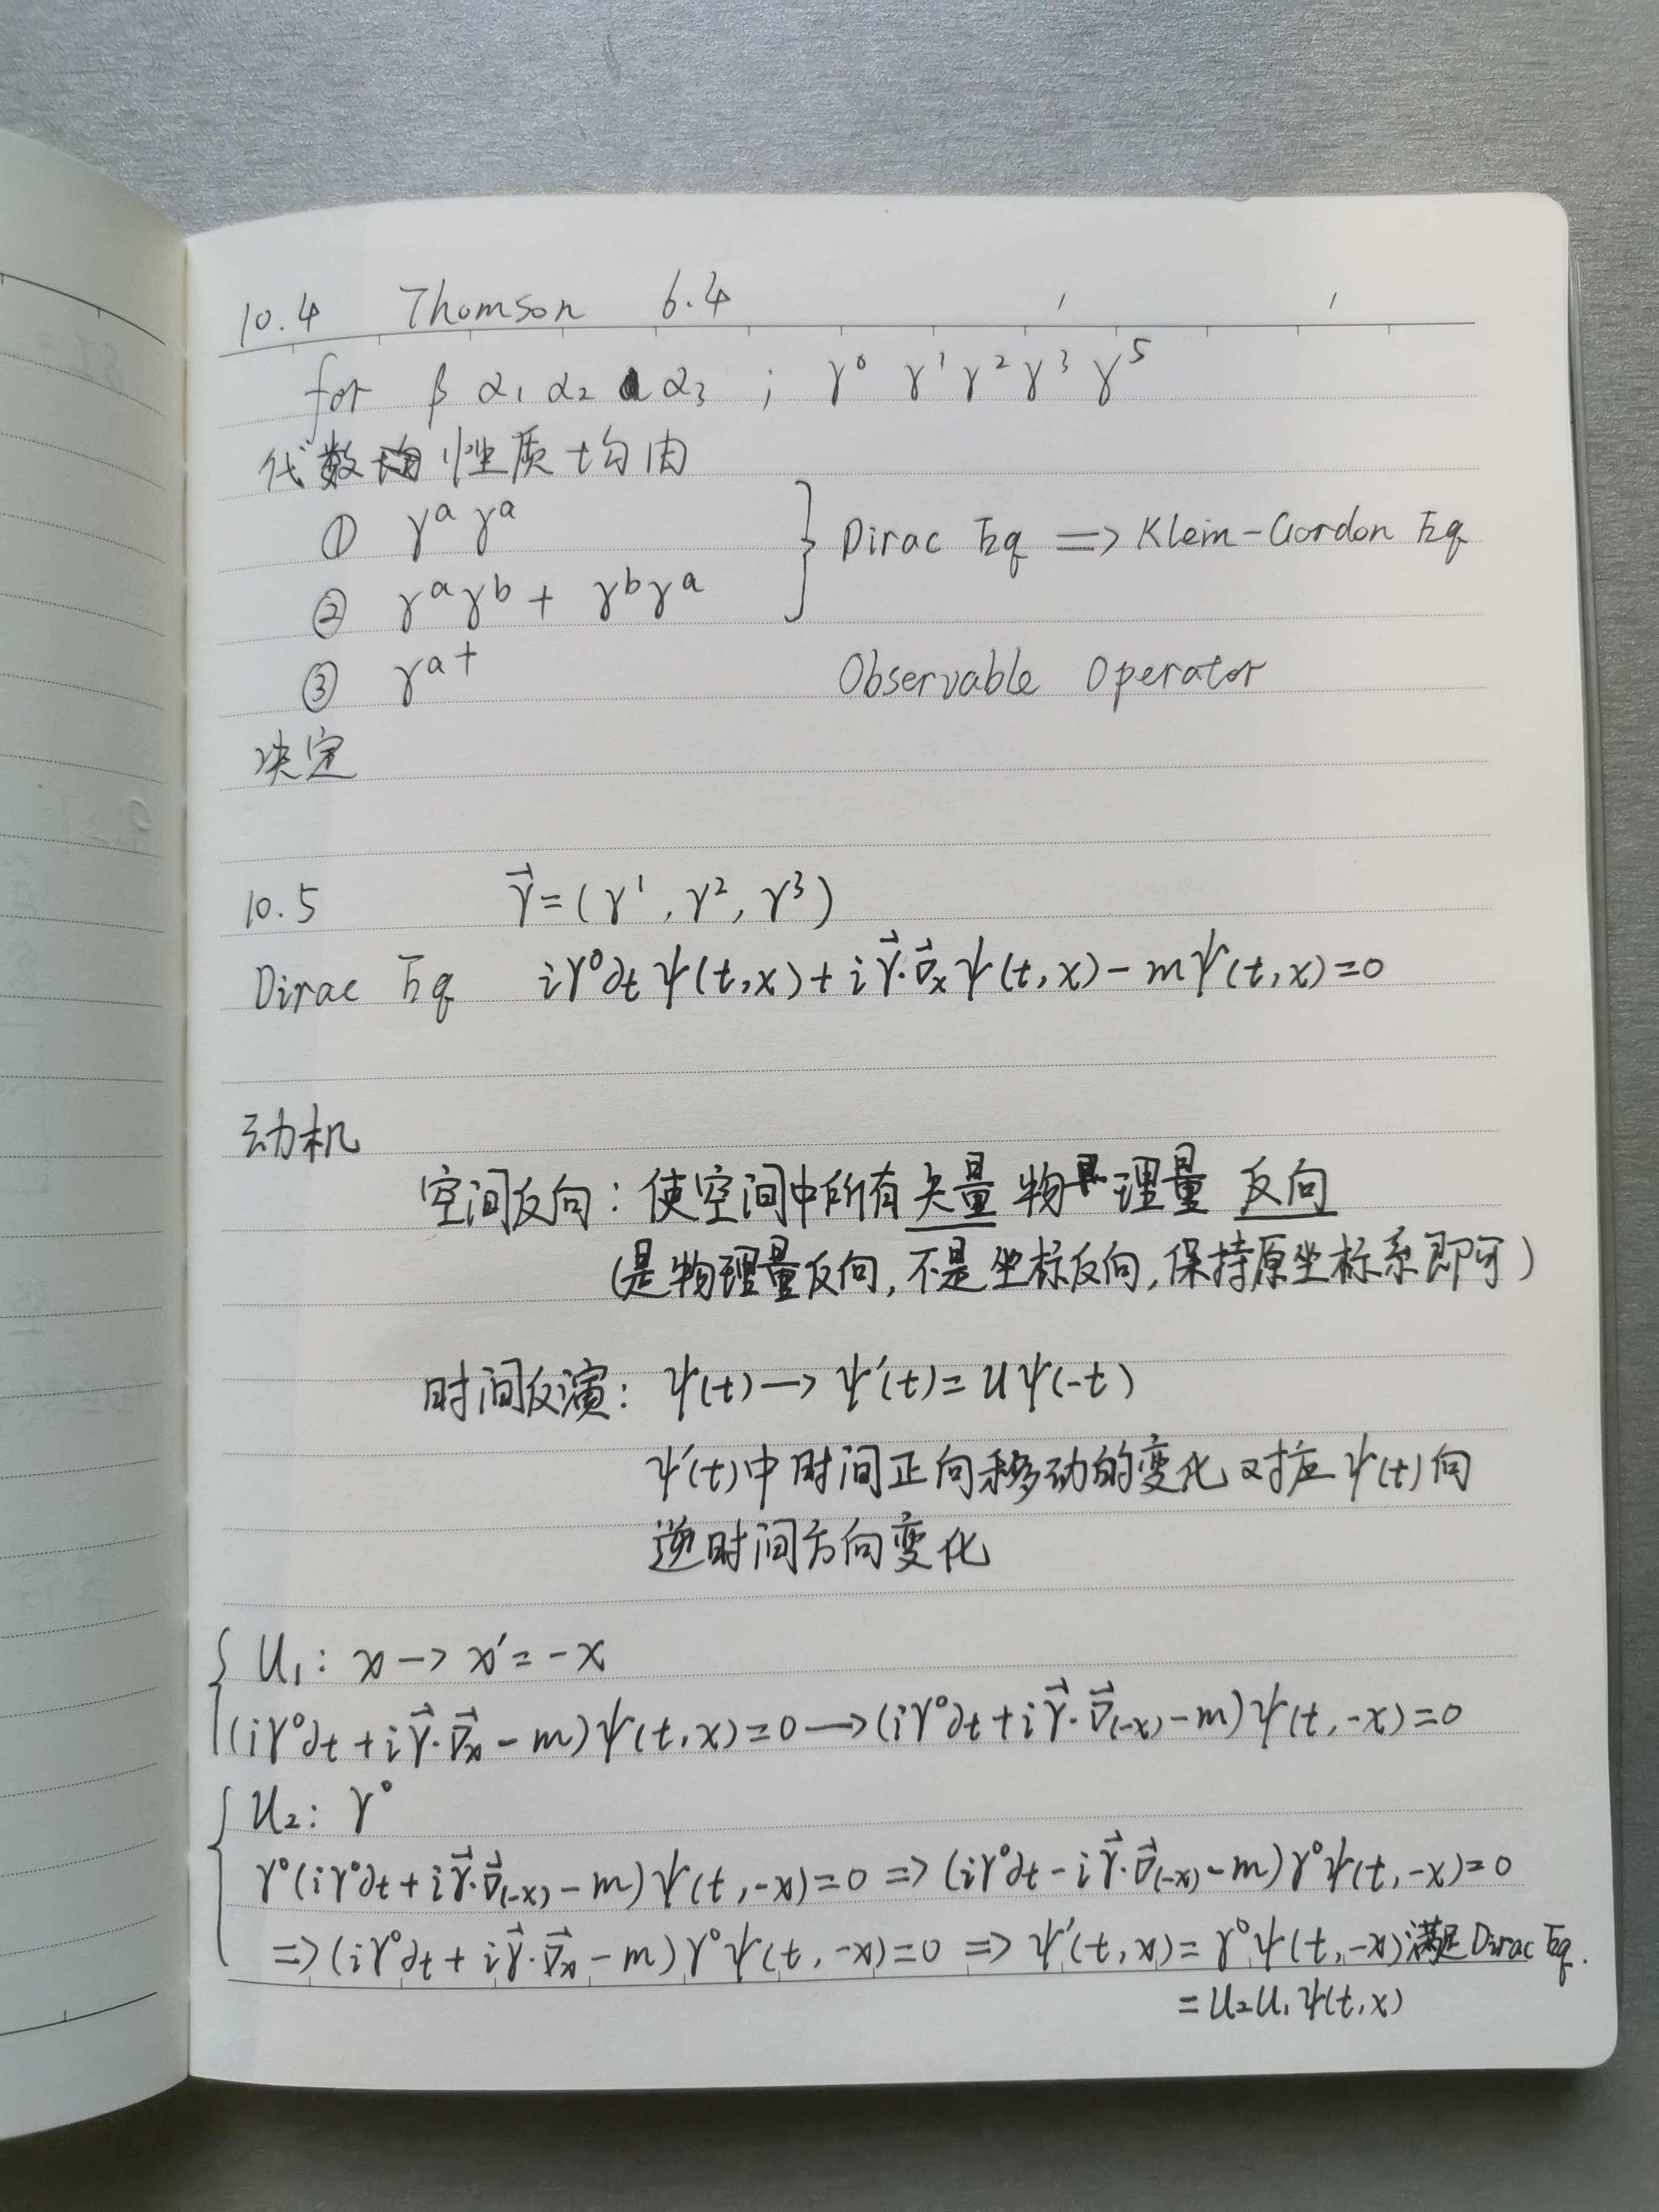 10.4 Thomson 6.4
for β α₁ α₂ α₃ ; γ⁰ γ¹ γ² γ³ γ⁵
代数性质均由
① γᵃ γᵃ
② γᵃγᵇ + γᵇγᵃ } Dirac Eq => Klein-Gordon Eq
③ γᵃ† Observable Operator
决定
10.5 γ⃗ = (γ¹, γ², γ³)
Dirac Eq iγ⁰∂t ψ(t,x) + i γ⃗·∇⃗ₓ ψ(t,x) - mψ(t,x) = 0
动机
空间反向: 使空间中所有矢量物理量 反向
(是物理量反向, 不是坐标反向, 保持原坐标系即可)
时间反演: ψ(t) → ψ'(t) = Uψ(-t)
ψ'(t)中时间正向移动的变化对应ψ(t)向
逆时间方向变化
U₁: x → x' = -x
(iγ⁰∂t + iγ⃗·∇⃗ₓ - m)ψ(t,x) = 0 → (iγ⁰∂t + iγ⃗·∇⃗₍₋ₓ₎ - m)ψ(t,-x) = 0
U₂: γ⁰
γ⁰(iγ⁰∂t + iγ⃗·∇⃗₍₋ₓ₎ - m)ψ(t,-x) = 0 => (iγ⁰∂t - iγ⃗·∇⃗₍₋ₓ₎ - m)γ⁰ψ(t,-x) = 0
=> (iγ⁰∂t + iγ⃗·∇⃗ₓ - m)γ⁰ψ(t,-x) = 0 => ψ'(t,x) = γ⁰ψ(t,-x)满足Dirac Eq.
= U₂U₁ψ(t,x)